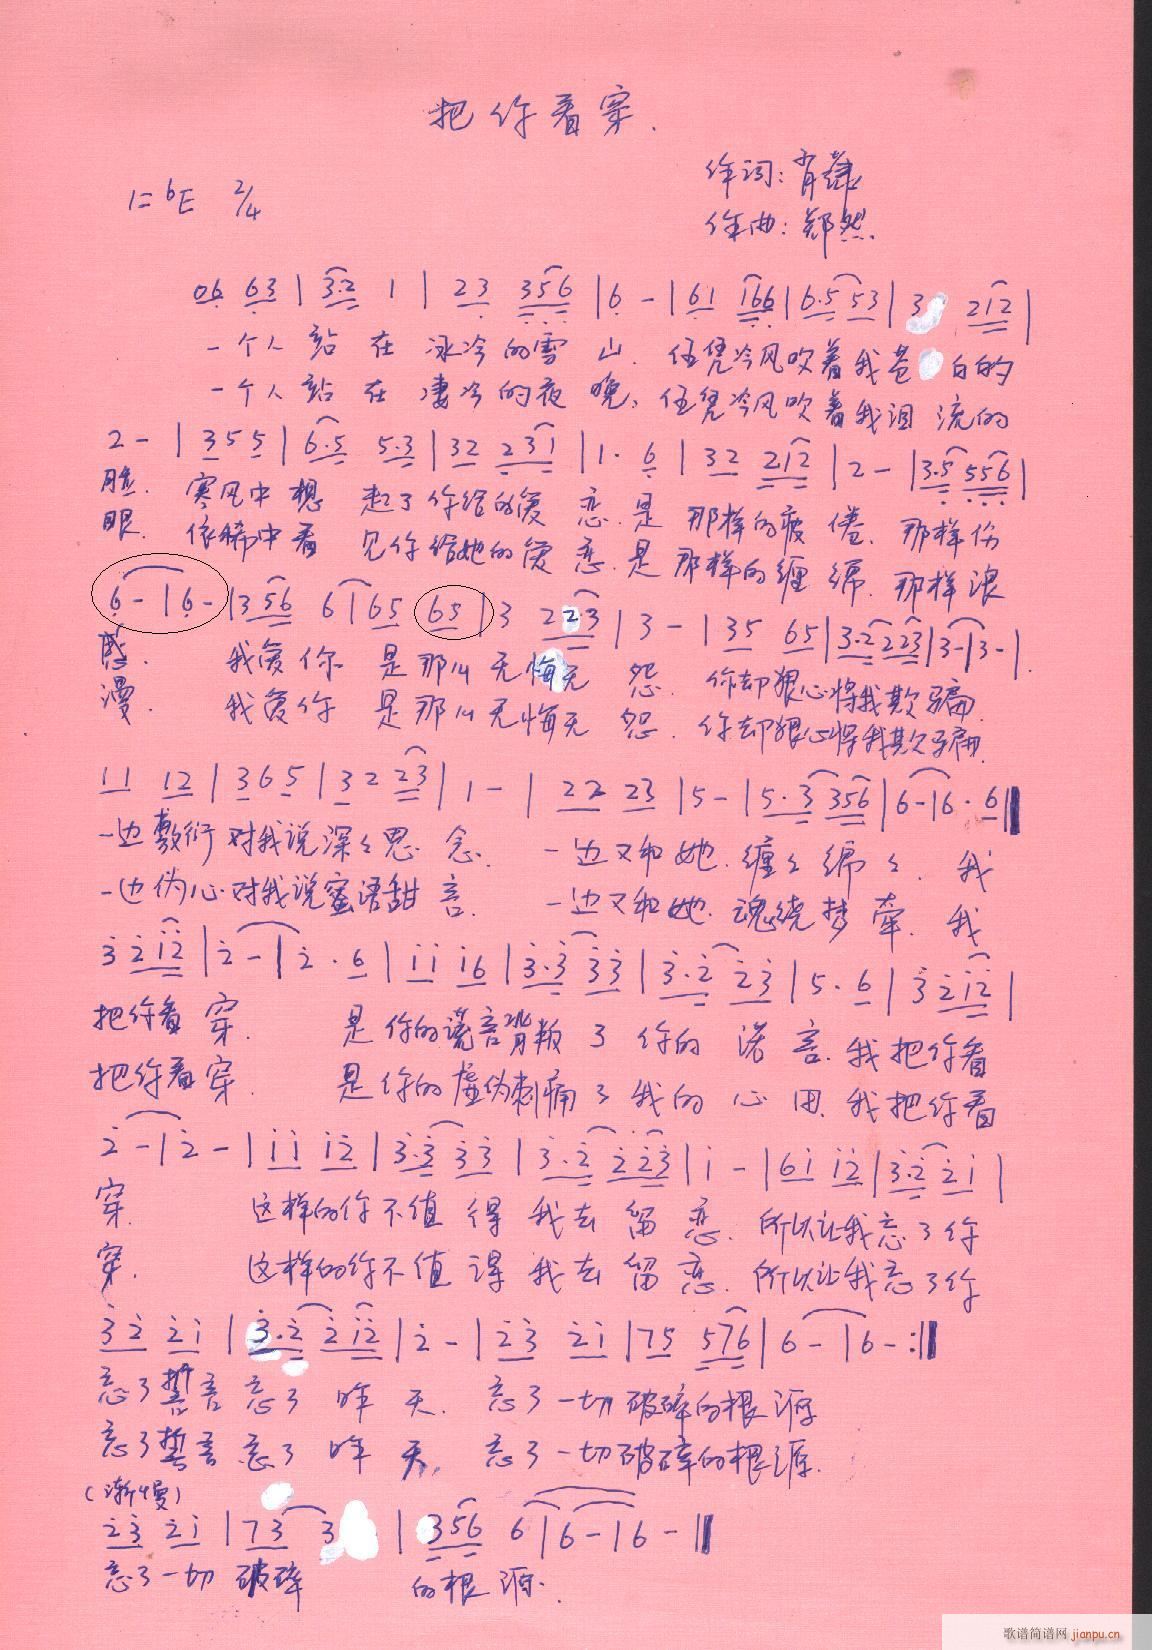 把你看穿.
作词：肖
1=bE 2/4
作曲：郑然
06 63 | 3·2 1 | 23 356 | 6 - | 61 166 | 6·5 53 | 3 212 |
一个人站在冰冷的雪山.任凭冷风吹着我苍白的
一个人站在凄冷的夜晚，任凭冷风吹着我泪流的
2 - | 355 | 6·5 5·3 | 32 231 | 1· 6 | 32 212 | 2 - | 3·5 556 |
脸.寒风中想起了你给的爱恋.是那样的疲倦.那样伤
眼.依稀中看见你给她的爱恋.是那样的缠绵.那样浪
6 - | 6 - | 356 6 | 65 65 | 3 22·3 | 3 - | 35 65 | 3·2 223 | 3 - | 3 - |
感.我爱你是那么无悔无怨.你却狠心将我欺骗.
漫.我爱你是那么无悔无怨.你却狠心将我欺骗.
11 12 | 365 | 32 23 | 1 - | 22 23 | 5 - | 5·3 356 | 6 - | 6· 6 ‖
一边敷衍对我说深々思念.一边又和她.缠々绵々.我
一边伪心对我说蜜语甜言.一边又和她.魂绕梦牵.我
3 212 | 2 - | 2 · 6 | 11 16 | 3·3 33 | 3·2 23 | 5· 6 | 3 212 |
把你看穿.是你的谎言背叛了你的诺言.我把你看
把你看穿.是你的虚伪刺痛了我的心田.我把你看
2 - | 2 - | 11 12 | 3·3 33 | 3·2 223 | 1 - | 61 12 | 3·2 21 |
穿.这样的你不值得我去留恋.所以让我忘了你
穿.这样的你不值得我去留恋.所以让我忘了你
32 21 | 3·2 212 | 2 - | 23 21 | 75 576 | 6 - | 6 - :‖
忘了誓言忘了昨天.忘了一切破碎的根源
忘了誓言忘了昨天.忘了一切破碎的根源.
(渐慢)
23 21 | 73 3 | 356 6 | 6 - | 6 - ‖
忘了一切破碎的根源.
歌谱简谱网 jianpu.cn